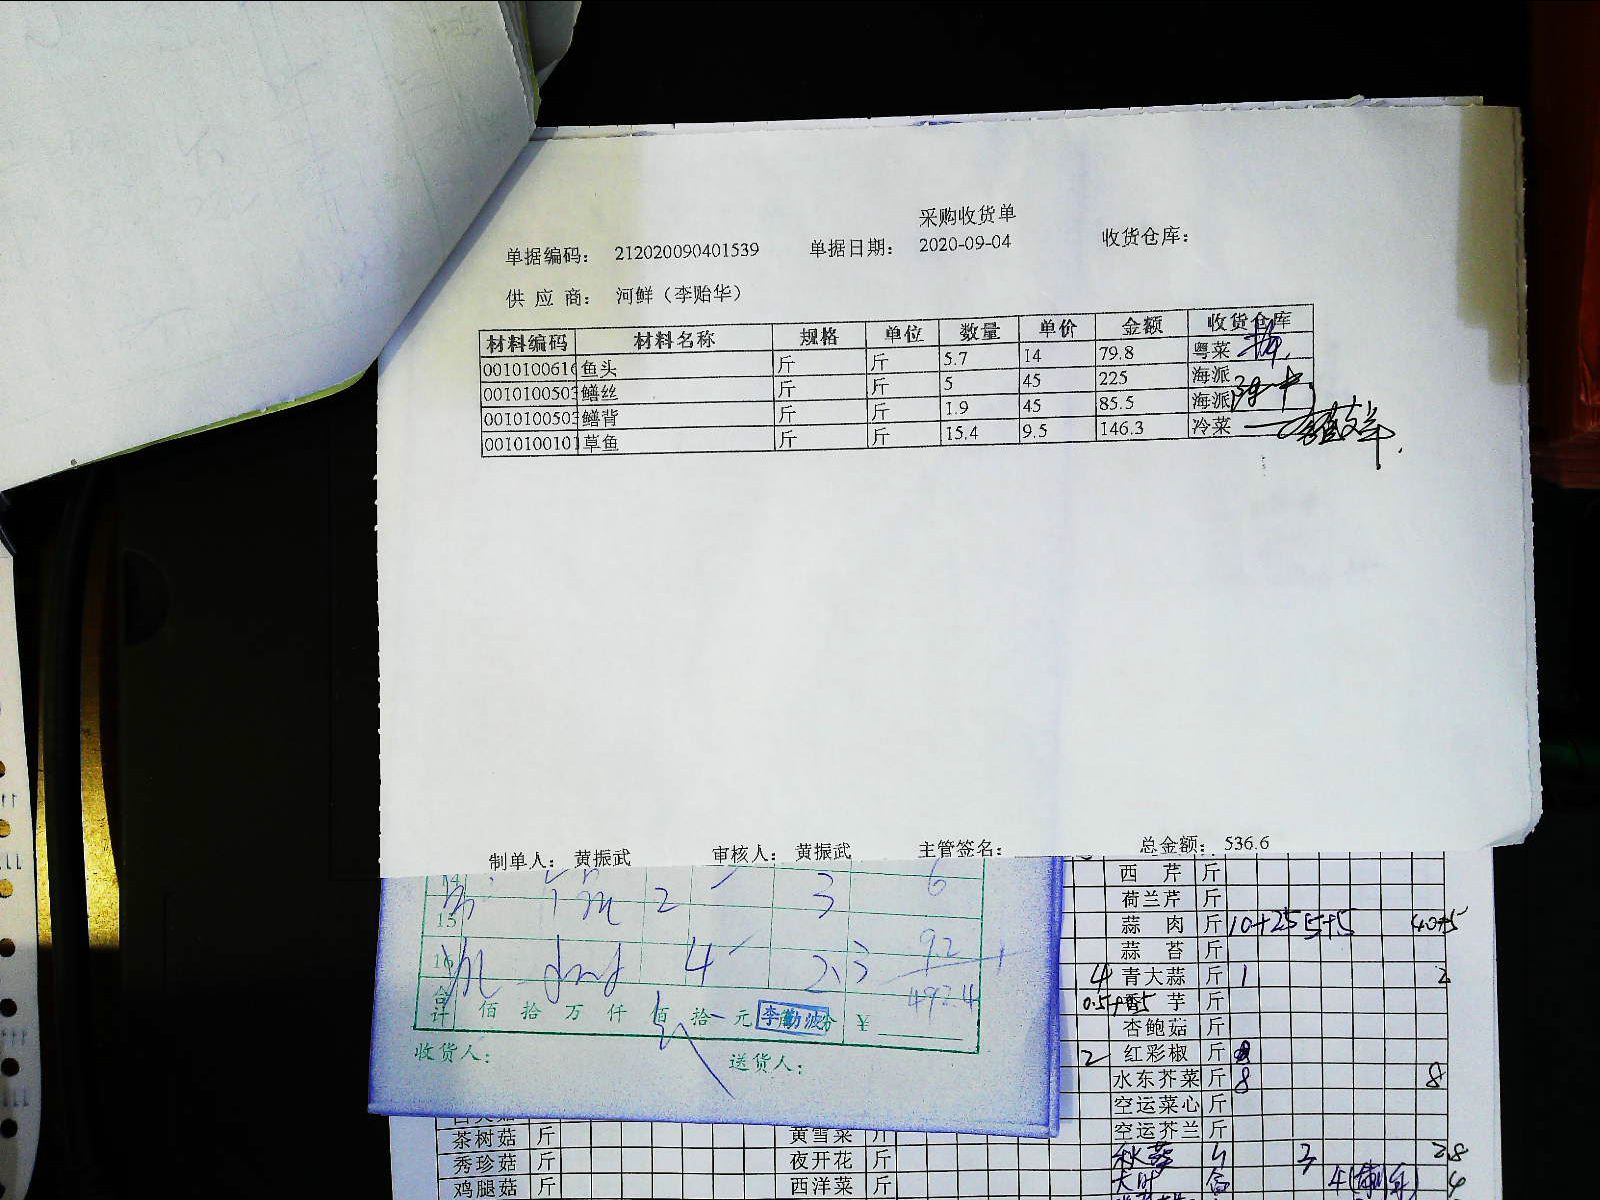 采购收货单
单据编码： 212020090401539 单据日期： 2020-09-04 收货仓库：
供 应 商： 河鲜（李贻华）
材料编码 材料名称 规格 单位 数量 单价 金额 收货仓库
0010100616 鱼头 斤 斤 5.7 14 79.8 粤菜
0010100503 鳝丝 斤 斤 5 45 225 海派
0010100503 鳝背 斤 斤 1.9 45 85.5 海派
0010100101 草鱼 斤 斤 15.4 9.5 146.3 冷菜
制单人： 黄振武 审核人： 黄振武 主管签名： 总金额： 536.6
14 2 3 6
15
16 4 2.3 9.2
合计 佰 拾 万 仟 佰 拾 元 李勤波 分 ¥
收货人： 送货人：
西 芹 斤
荷兰芹 斤
蒜 肉 斤 10+25 5+5
蒜 苔 斤
4 青大蒜 斤 1 2
芋 斤
杏鲍菇 斤
2 红彩椒 斤
水东芥菜 斤 8 8
空运菜心 斤
空运芥兰 斤
茶树菇 斤 黄雪菜 斤
秀珍菇 斤 夜开花 斤 3
鸡腿菇 斤 西洋菜 斤 4